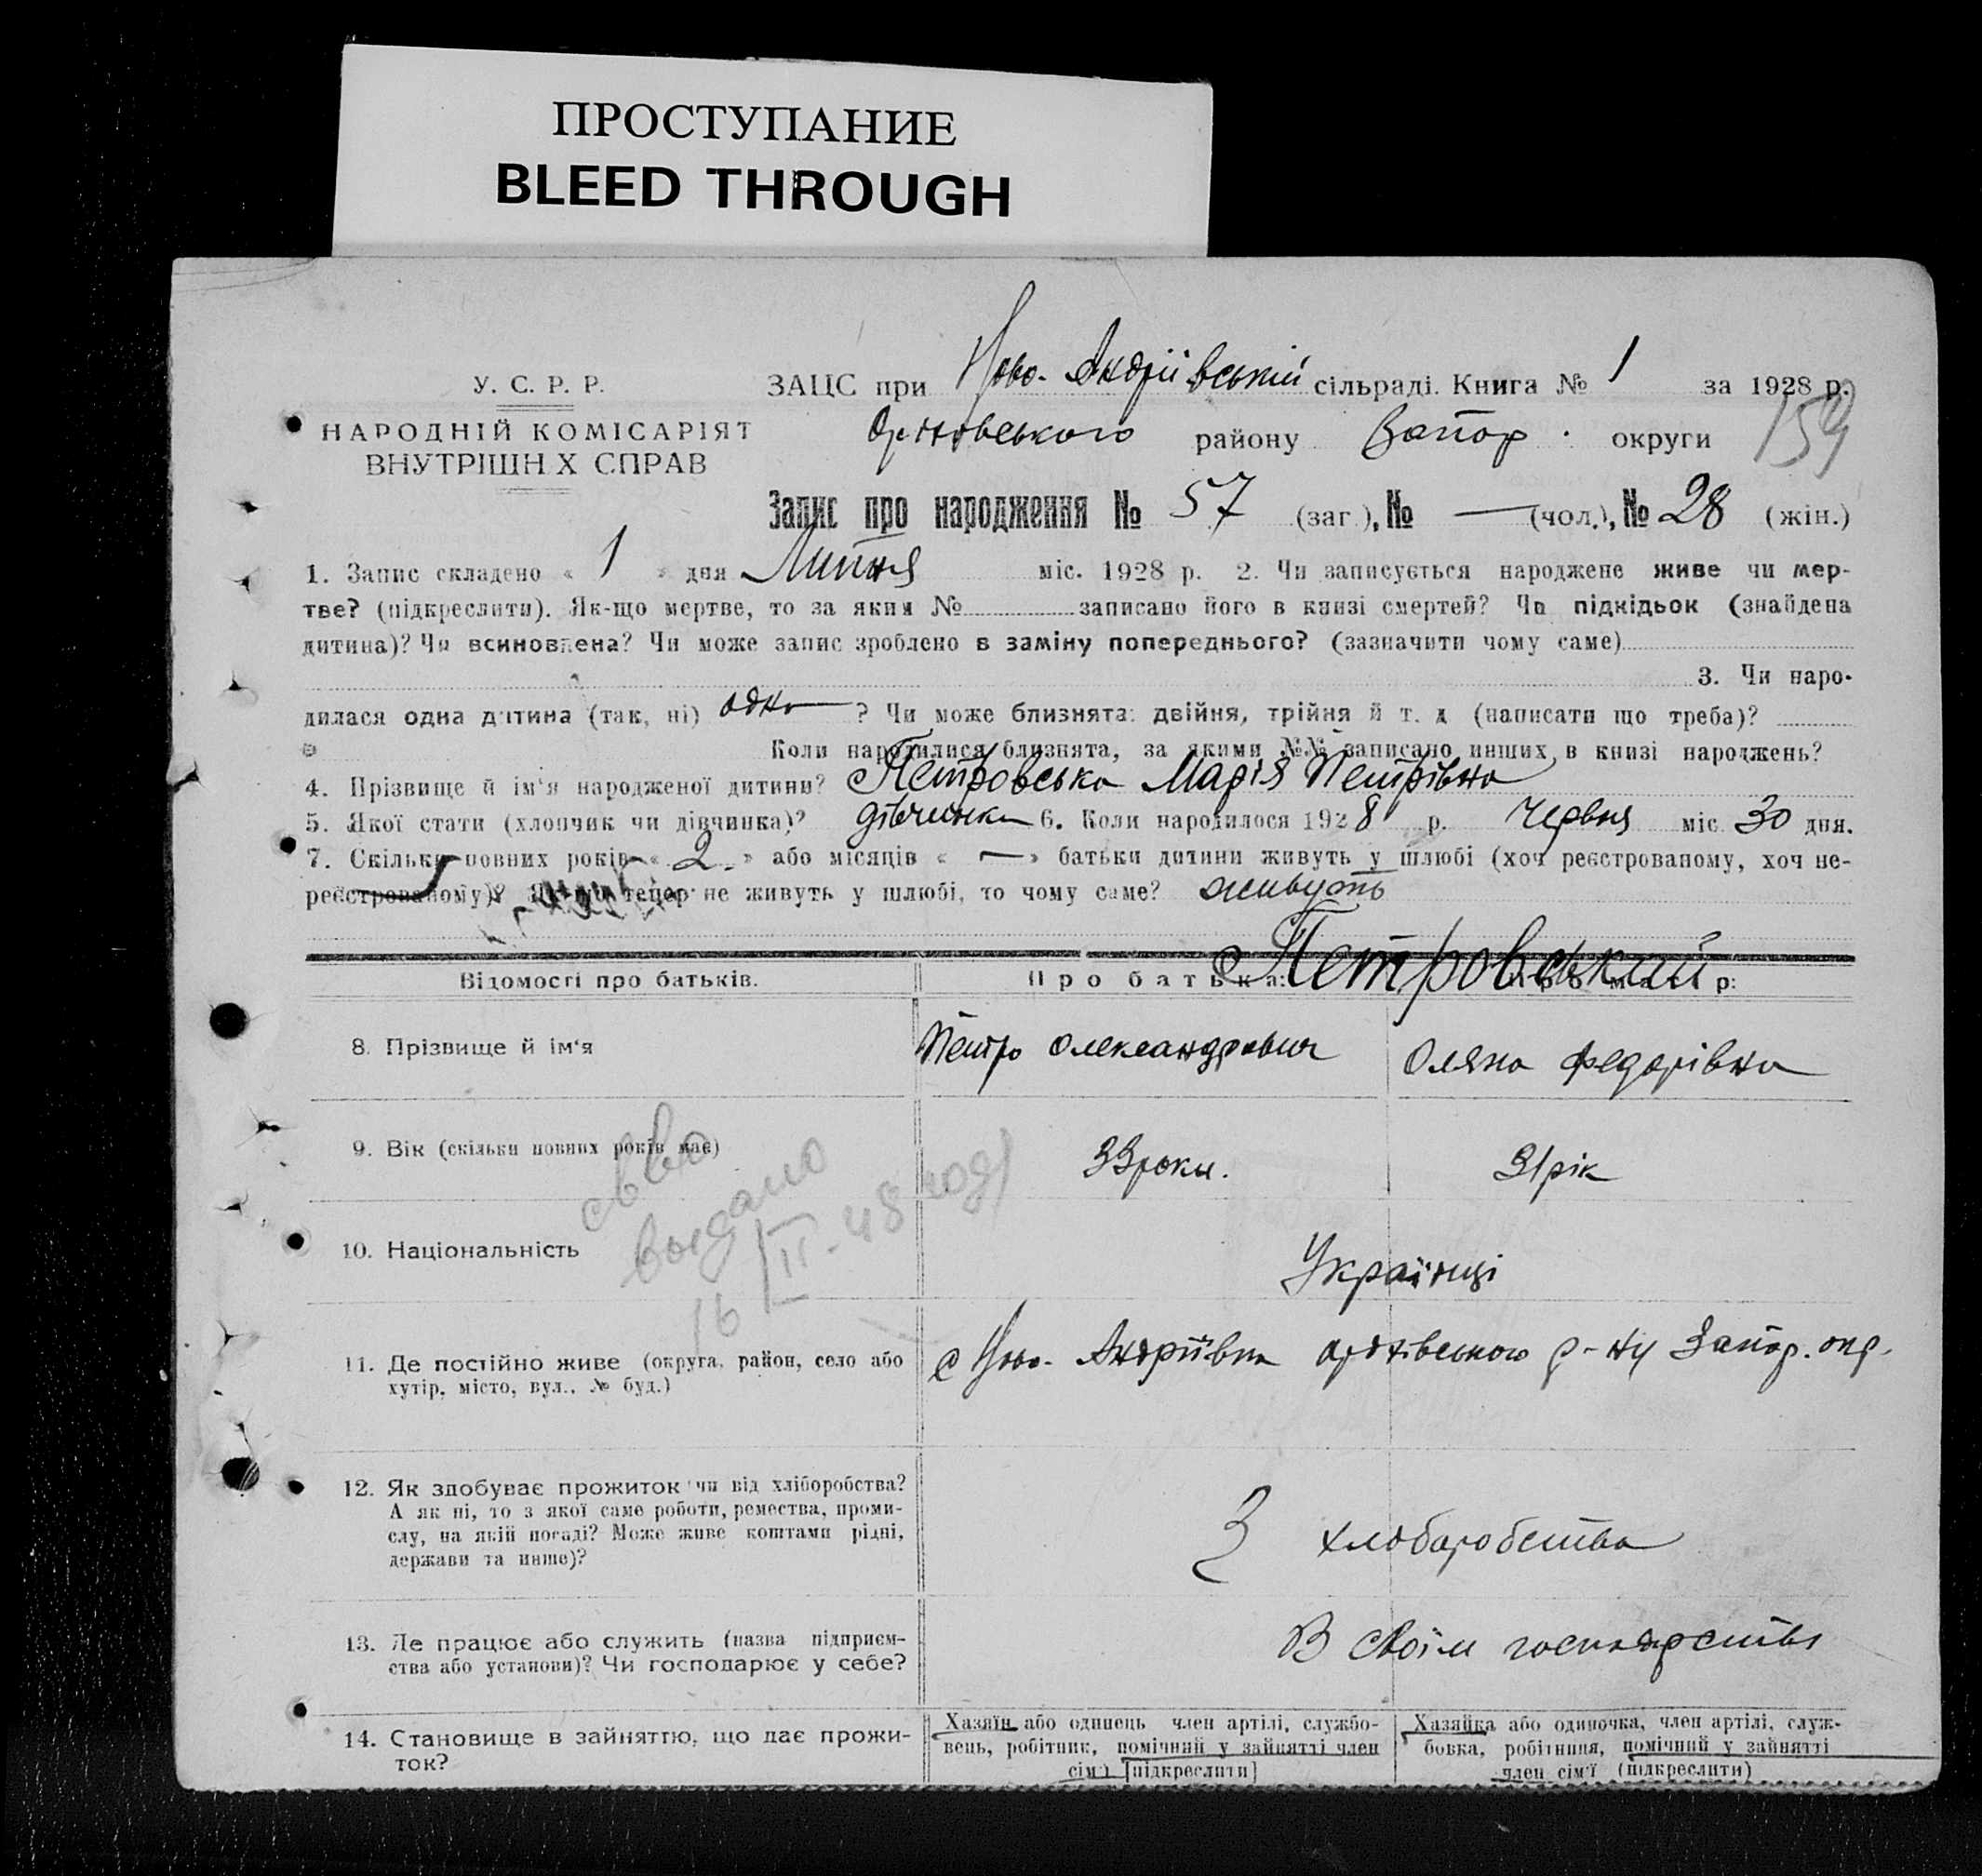 ПРОСТУПАНИЕ
BLEED THROUGH
У. С. Р. Р.
НАРОДНІЙ КОМІСАРІЯТ
ВНУТРІШН Х СПРАВ
ЗАЦС при Ново-Андріївській сільраді. Книга № 1 за 1928 р.
району Запор. округи
159
Запис про народження № 57 (заг.), № — (чол.), № 28 (жін.)
1. Запис складено « 1 » дня Липня міс. 1928 р. 2. Чи записується народжене живе чи мер-
тве? (підкреслити). Як-що мертве, то за яким № записано його в книзі смертей? Чи підкідьок (знайдена
дитина)? Чи всиновлена? Чи може запис зроблено в заміну попереднього? (зазначити чому саме)
3. Чи наро-
дилася одна дитина (так, ні) одна ? Чи може близнята: двійня, трійня й т. д (написати що треба)?
Коли народилися близнята, за якими №№ записано инших в книзі народжень?
4. Прізвище й ім'я народженої дитини? Петровська Марія Петрівна
5. Якої стати (хлопчик чи дівчинка)? дівчинка 6. Коли народилося 1928 р. Червня міс. 30 дня.
7. Скільки повних років « 2 » або місяців « — » батьки дитини живуть у шлюбі (хоч реєстрованому, хоч не-
реєстрованому)? тепер не живуть у шлюбі, то чому саме? живуть
Петровський
Відомості про батьків. Про батька:
8. Прізвище й ім'я Петро Олександрович Оляна Федорівна
9. Вік (скільки повних років має) 33 роки. 31 рік
10. Національність Українці
видано
16/II-48 год
11. Де постійно живе (округа, район, село або с Ново-Андріївка оріхівського р-ну Запор. окр.
хутір, місто, вул., № буд.)
12. Як здобуває прожиток чи від хліборобства?
А як ні, то з якої саме роботи, ремества, проми-
слу, на якій посаді? Може живе коштами рідні, З хліборобства
держави та инше)?
13. Де працює або служить (назва підприєм- В своїм господарстві
ства або установи)? Чи господарює у себе?
14. Становище в зайняттю, що дає прожи-
ток?
Хазяїн або одинець член артілі, службо-
вець, робітник, помічний у зайнятті член
сім'ї [підкреслити]
Хазяйка або одиночка, член артілі, служ-
бовка, робітниця, помічний у зайнятті
член сім'ї (підкреслити)